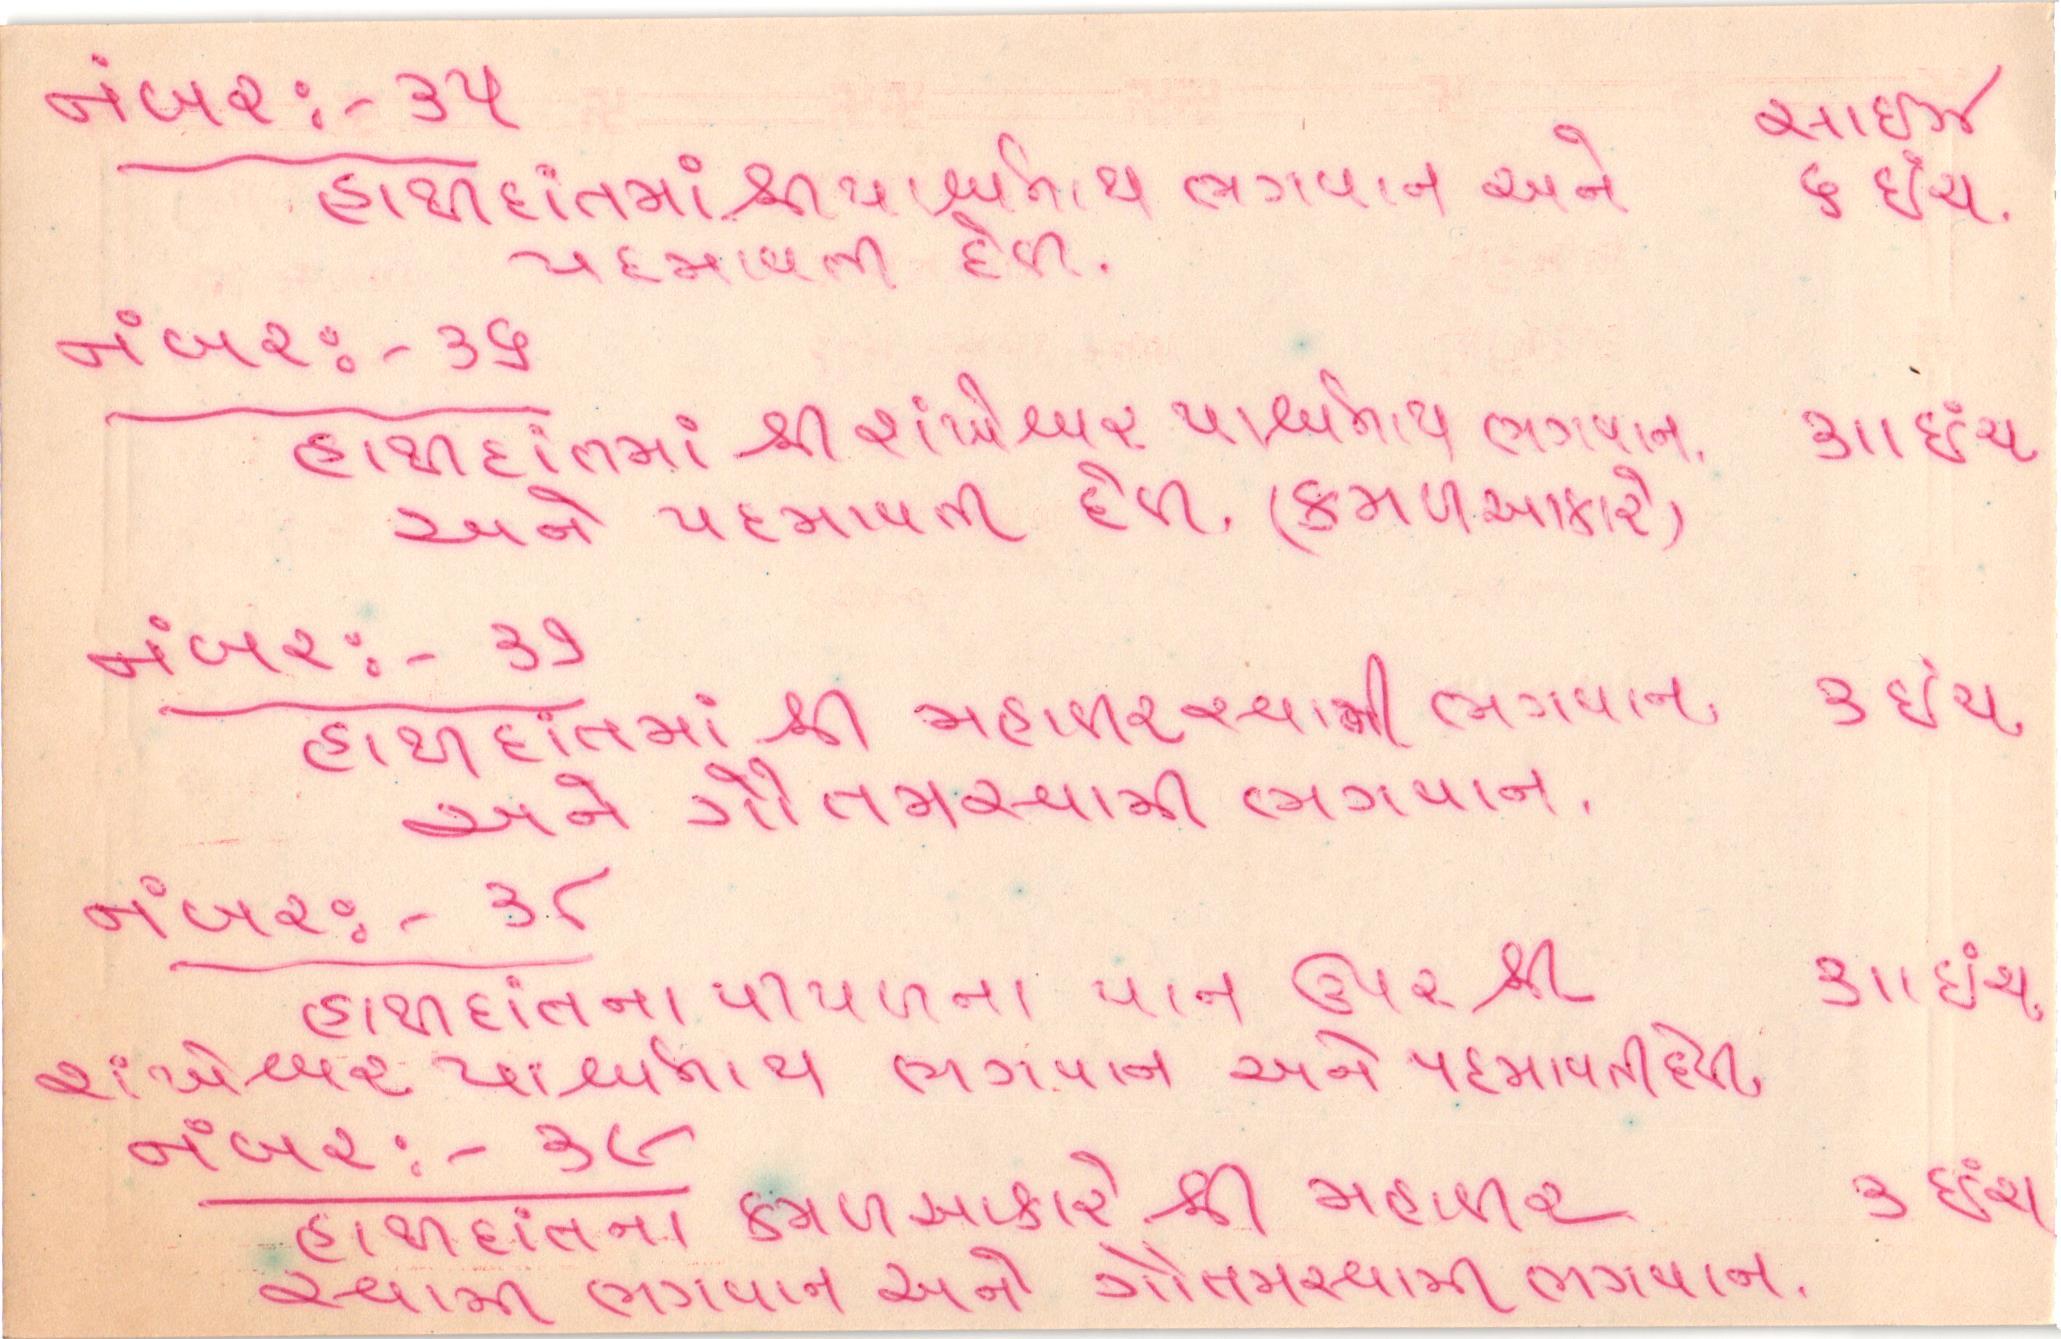 નંબર:- ૩૫
સાઇઝ
હાથીદાંતમાં શ્રી પાર્શ્વનાથ ભગવાન અને ૬ ઇંચ.
પદમાવતી દેવી.
નંબર:- ૩૬
હાથીદાંતમાં શ્રી શંખેશ્વર પાર્શ્વનાથ ભગવાન. ૩॥ ઇંચ
અને પદમાવતી દેવી. (કમળઆકારે)
નંબર:- ૩૭
હાથીદાંતમાં શ્રી મહાવીરસ્વામી ભગવાન. ૩ ઇંચ.
અને ગૌતમસ્વામી ભગવાન.
નંબર:- ૩૮
હાથીદાંતના પીપળના પાન ઉપર શ્રી ૩॥ ઇંચ.
શંખેશ્વર પાર્શ્વનાથ ભગવાન અને પદમાવતીદેવી.
નંબર:- ૩૯
હાથીદાંતના કમળ આકારે શ્રી મહાવીર ૩ ઇંચ
સ્વામી ભગવાન અને ગૌતમસ્વામી ભગવાન.